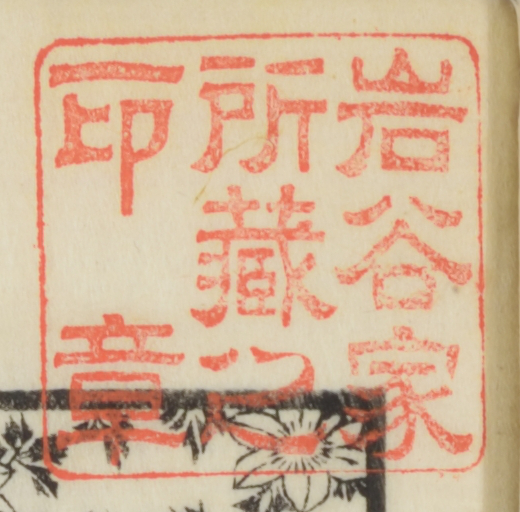 岩谷家
所藏之
印章